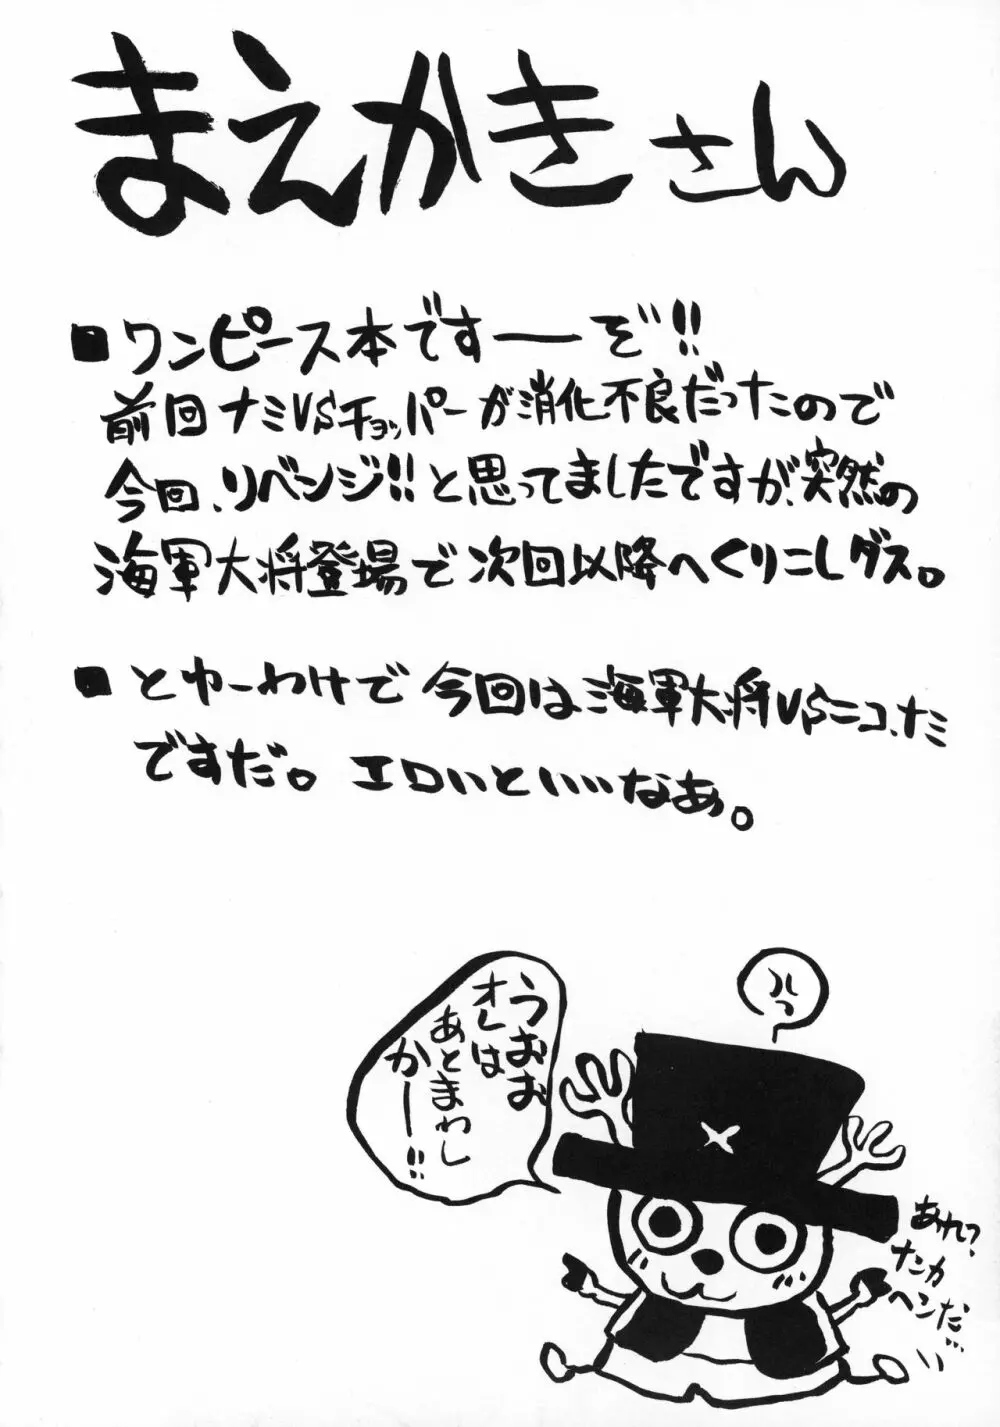 まえかきさん
■ワンピース本ですーぞ!!
前回ナミVSチョッパーが消化不良だったので
今回、リベンジ!!と思ってましたですが、突然の
海軍大将登場で次回以降へくりこしダス。
■とゆーわけで今回は海軍大将VSニコ、ナミ
ですだ。エロいといいなあ。
うおお
オレは
あとまわし
かー!!
ハっ
あれ?
ナンカ
ヘンだ…